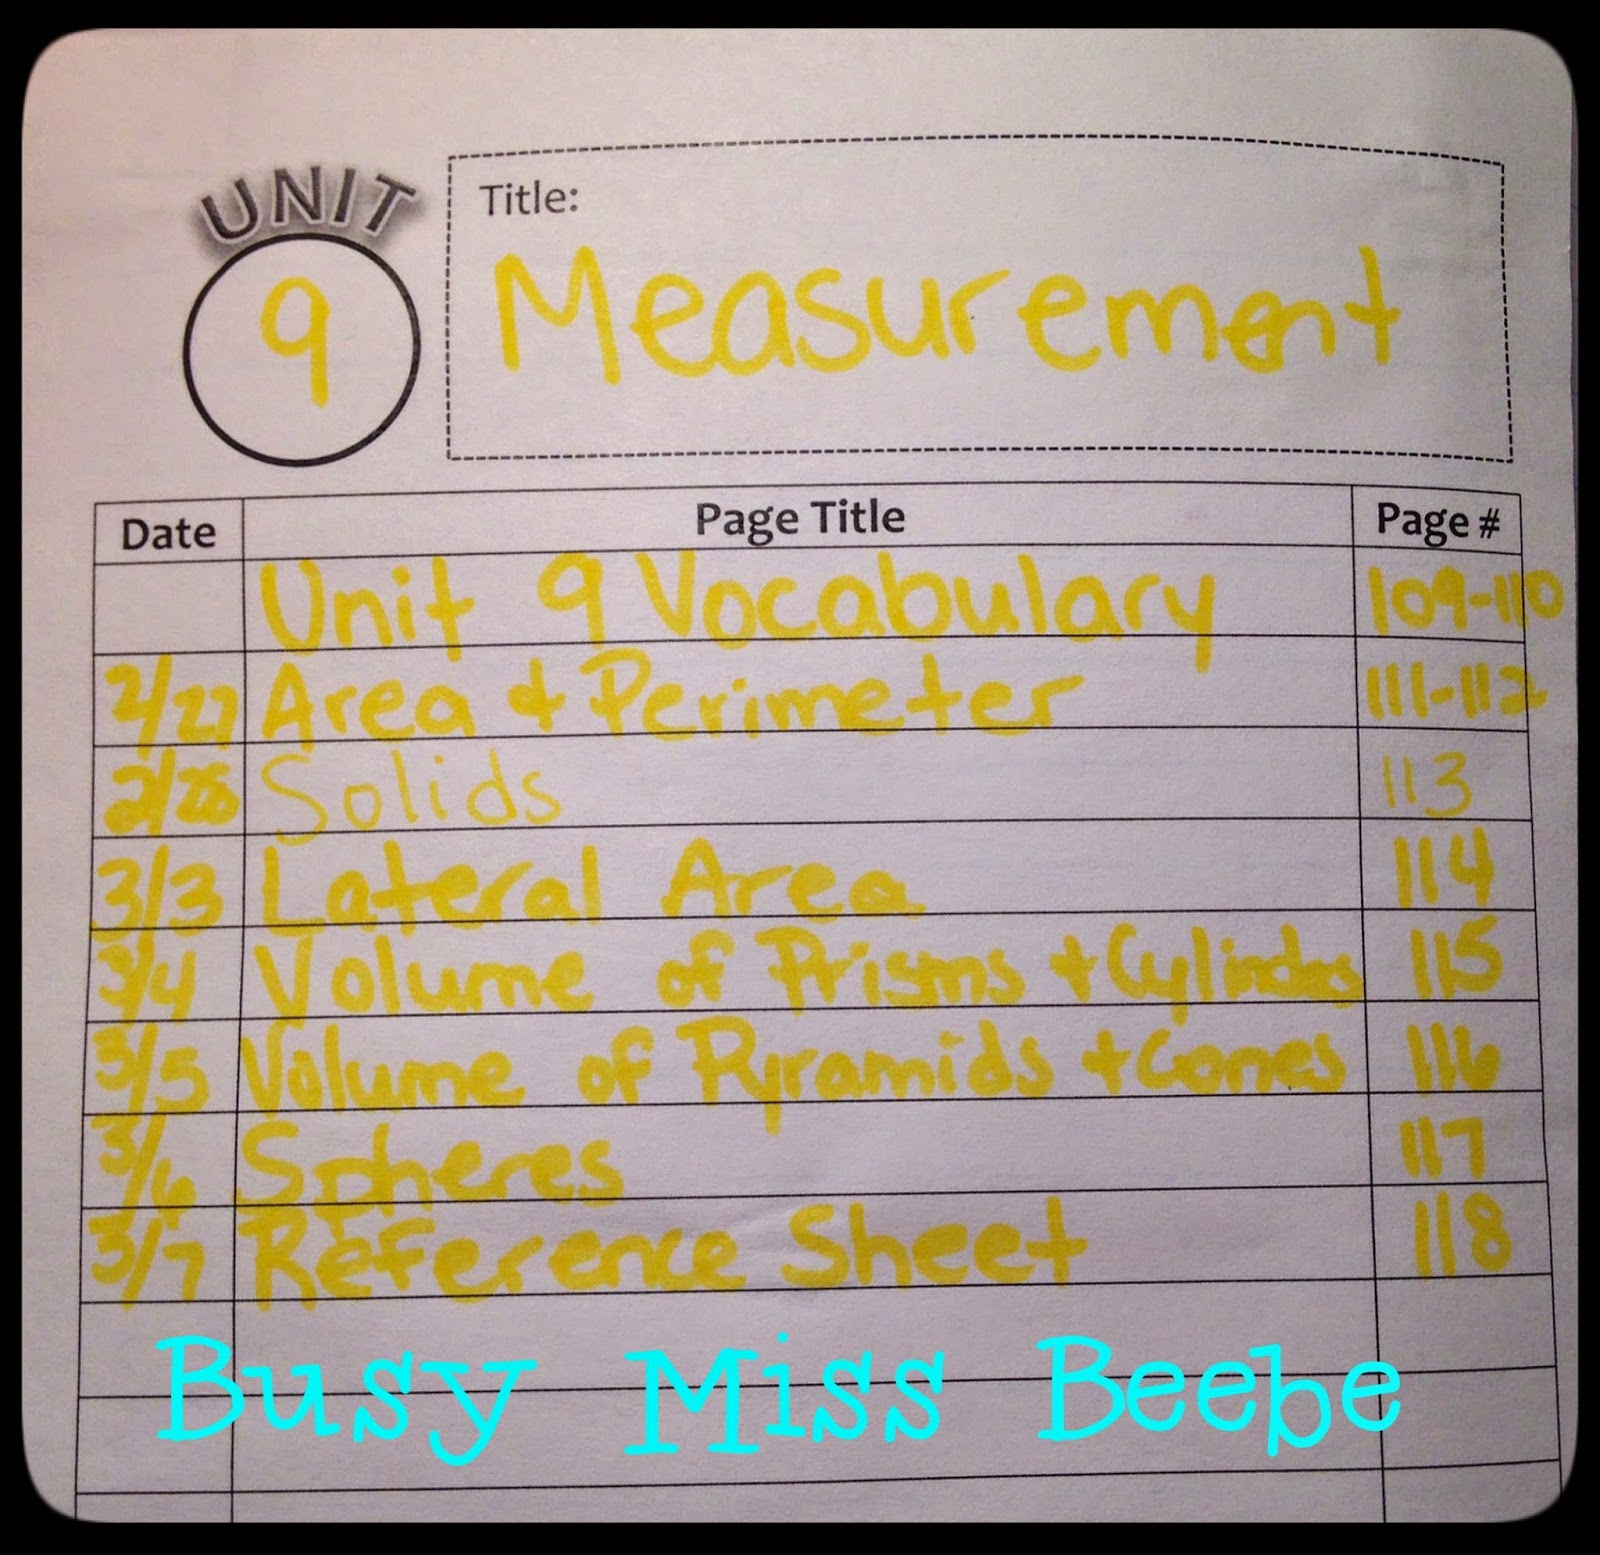 UNIT
9
Title:
Measurement
Date Page Title Page #
Unit 9 Vocabulary 109-110
2/27 Area & Perimeter 111-112
2/28 Solids 113
3/3 Lateral Area 114
3/4 Volume of Prisms + Cylinders 115
3/5 Volume of Pyramids + Cones 116
3/6 Spheres 117
3/7 Reference Sheet 118
Busy Miss Beebe